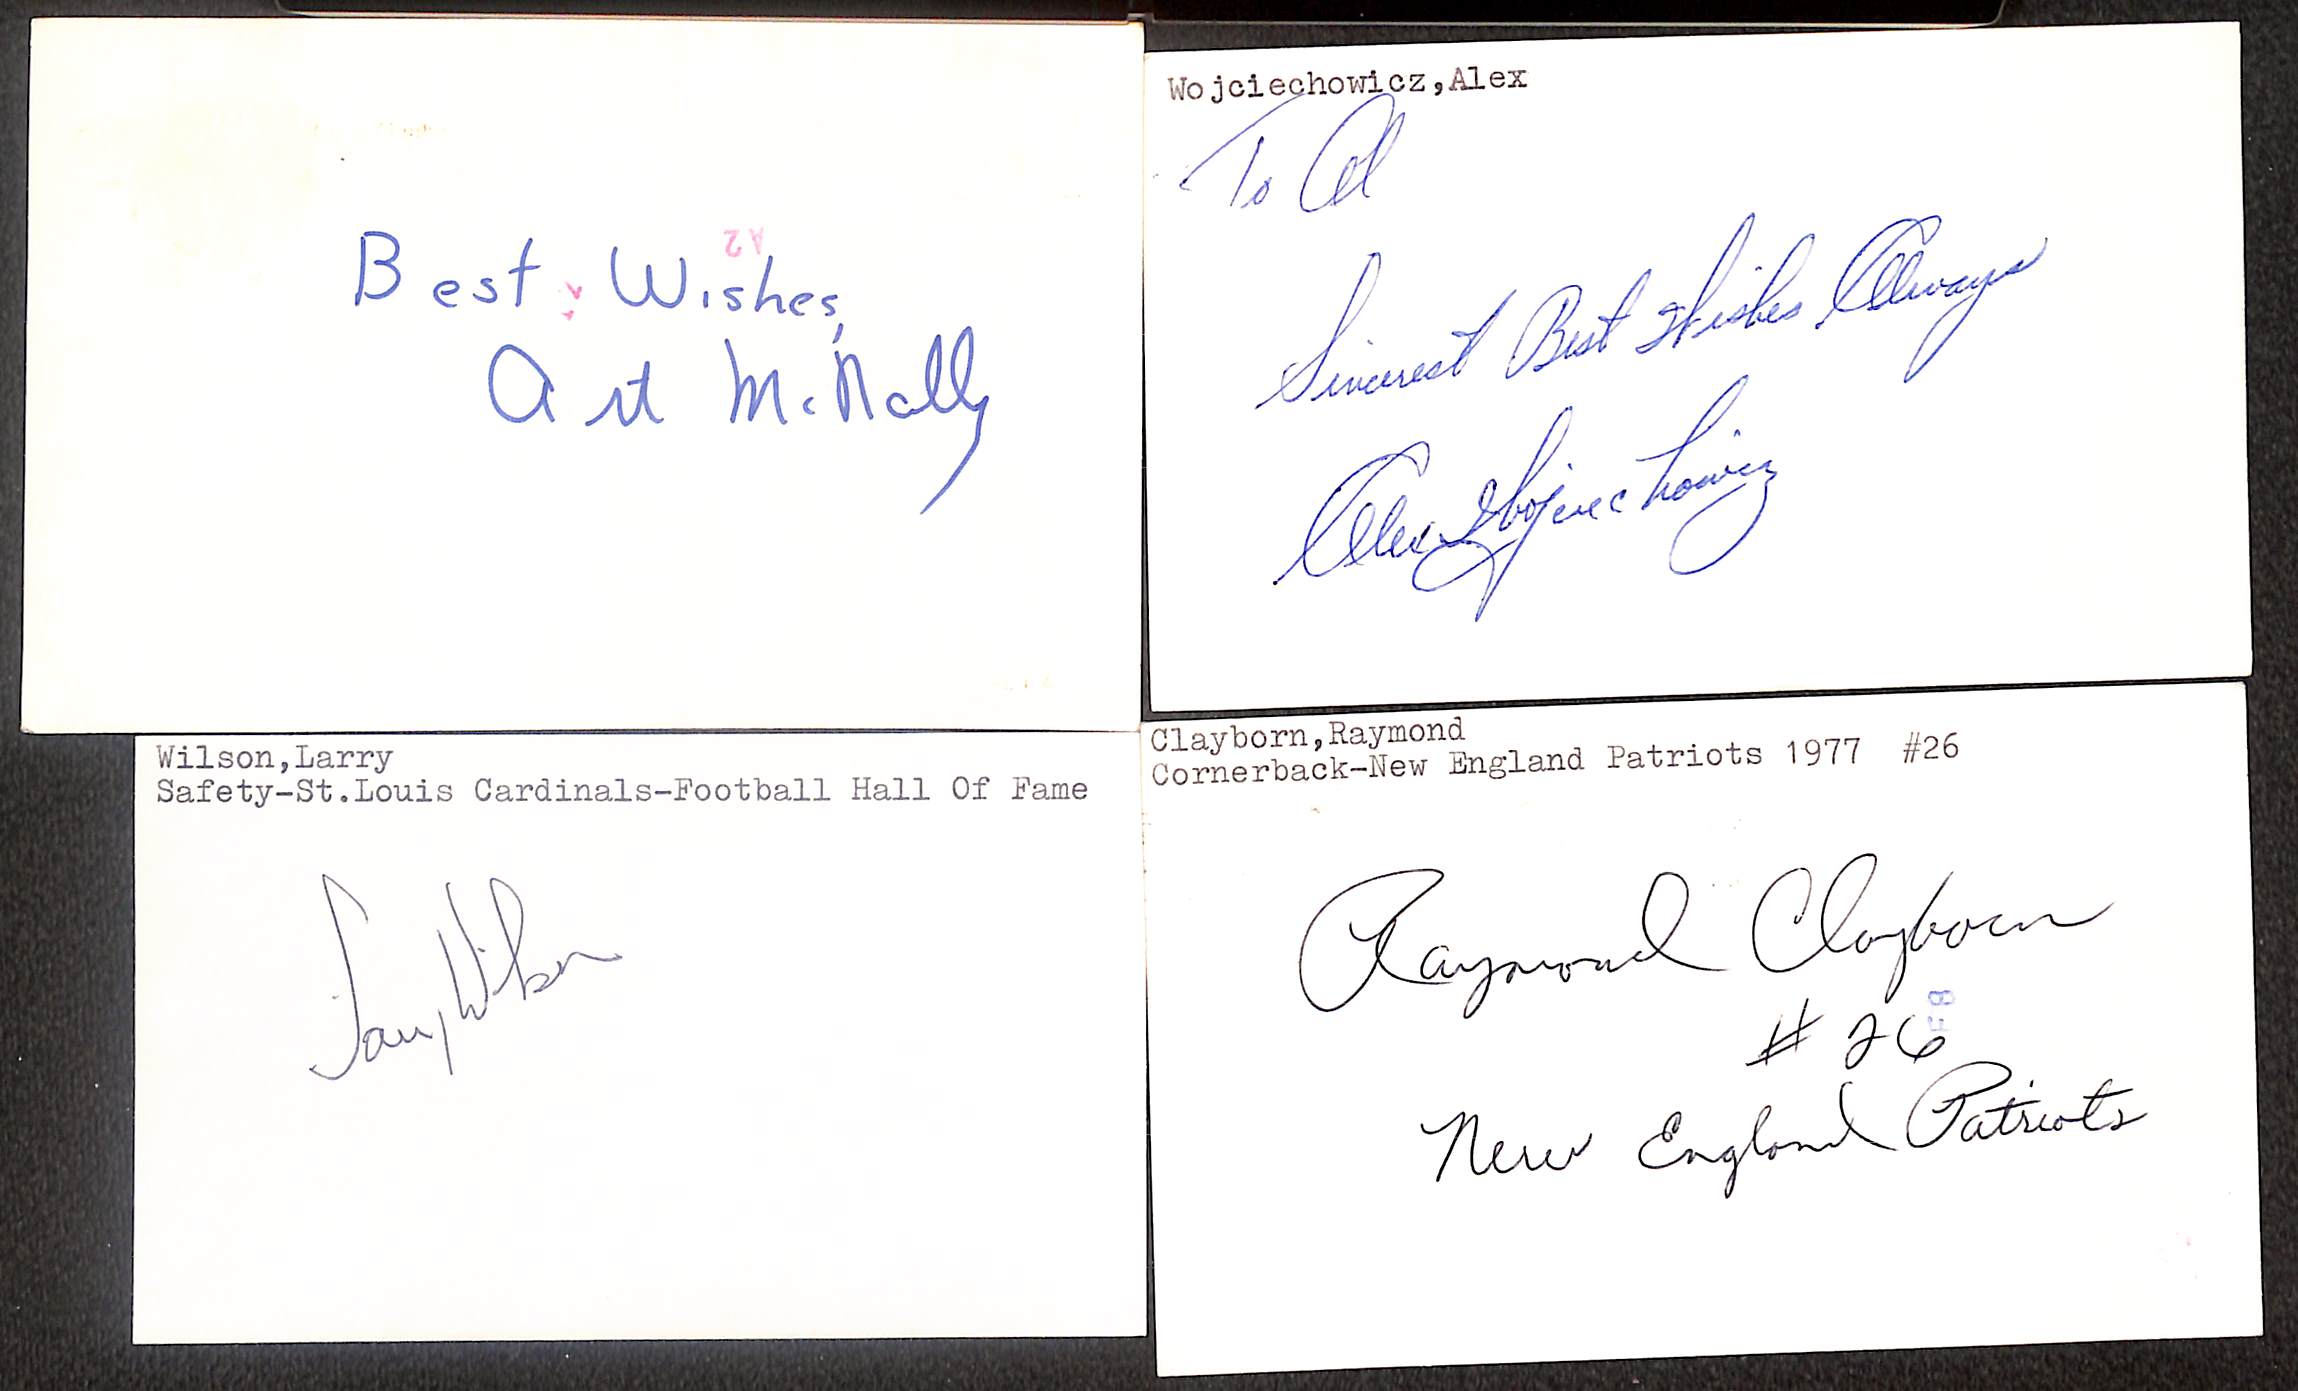 Best Wishes,
Art McNally
A2
Wojciechowicz,Alex
To Al
Sincerest Best Wishes Always
Alex Wojciechowicz
Wilson,Larry
Safety-St.Louis Cardinals-Football Hall Of Fame
Larry Wilson
Clayborn,Raymond
Cornerback-New England Patriots 1977 #26
Raymond Clayborn
# 26
FB
New England Patriots